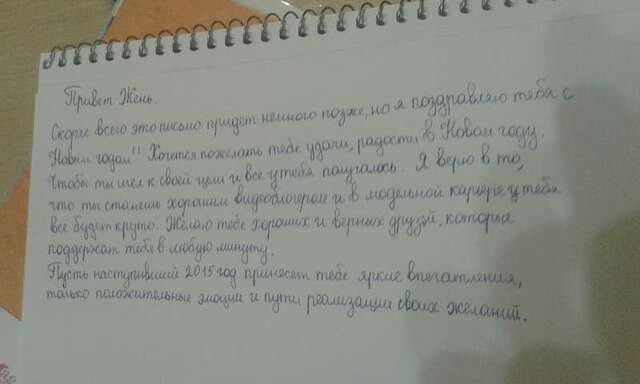 Привет Жень.
Скорее всего это письмо придет немного позже, но я поздравляю тебя с
Новым годом!! Хочется пожелать тебе удачи, радости в Новом году.
Чтобы ты шел к своей цели и все у тебя получалось. Я верю в то,
что ты станешь хорошим видеоблогером и в модельной карьере у тебя
всё будет круто. Желаю тебе хороших и верных друзей, которые
поддержат тебя в любую минуту.
Пусть наступивший 2015 год принесет тебе яркие впечатления,
только положительные эмоции и пути реализации своих желаний.